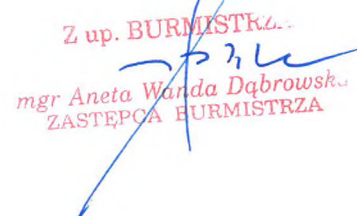 Z up. BURMISTRZ
mgr Aneta Wanda Dąbrowska
ZASTĘPCA BURMISTRZA